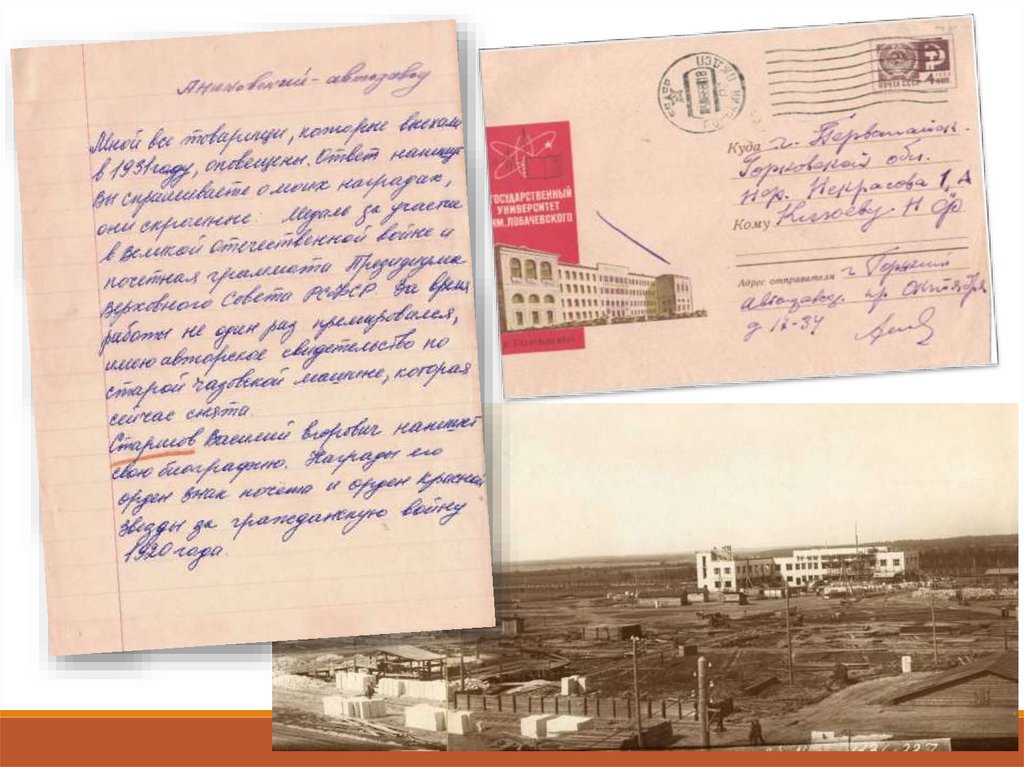 Аниховский - автозавод
Мной все товарищи, которые выехали
в 1931 году, оповещены. Ответ напишут
Вы спрашиваете о моих наградах,
они скромные: Медаль за участие
в Великой Отечественной войне и
почетная граммота Президиума
Верховного Совета РСФСР За время
работы не один раз премировался,
имею авторское свидетельство по
старой чазовской машине, которая
сейчас снята.
Старшов Василий Егорович напишет
свою биографию. Награды его
орден знак почета и орден красной
звезды за гражданскую войну
1920 года.
ПОЧТА СССР
4 КОП
ГОСУДАРСТВЕННЫЙ
УНИВЕРСИТЕТ
ИМ. ЛОБАЧЕВСКОГО
Куда г. Первомайск.
Горьковской обл.
пер. Некрасова 1, А
Кому Клюеву Н Ф
Адрес отправителя г Горький
Автозавод. пр Октября
д 17-34